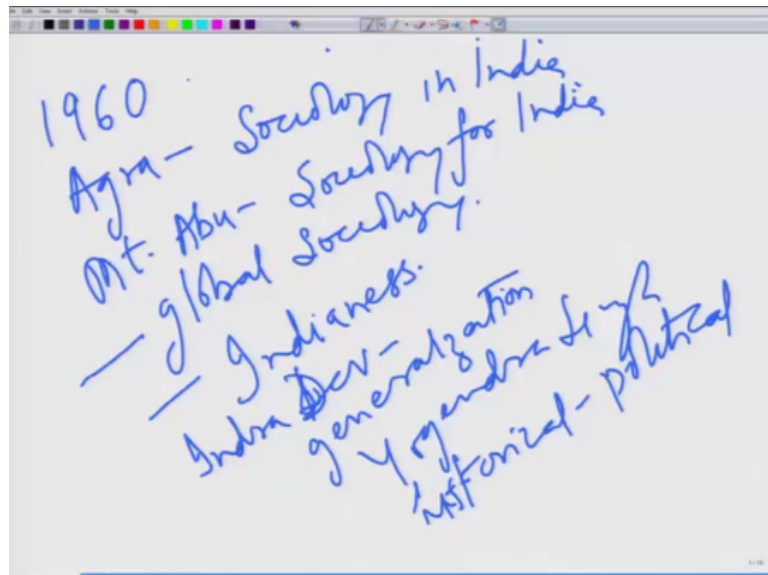 1960
Agra - Sociology in India
Mt. Abu - Sociology for India
- global Sociology.
- Indianess.
Indra Dev -
generalization
Yogendra Singh
historical - political